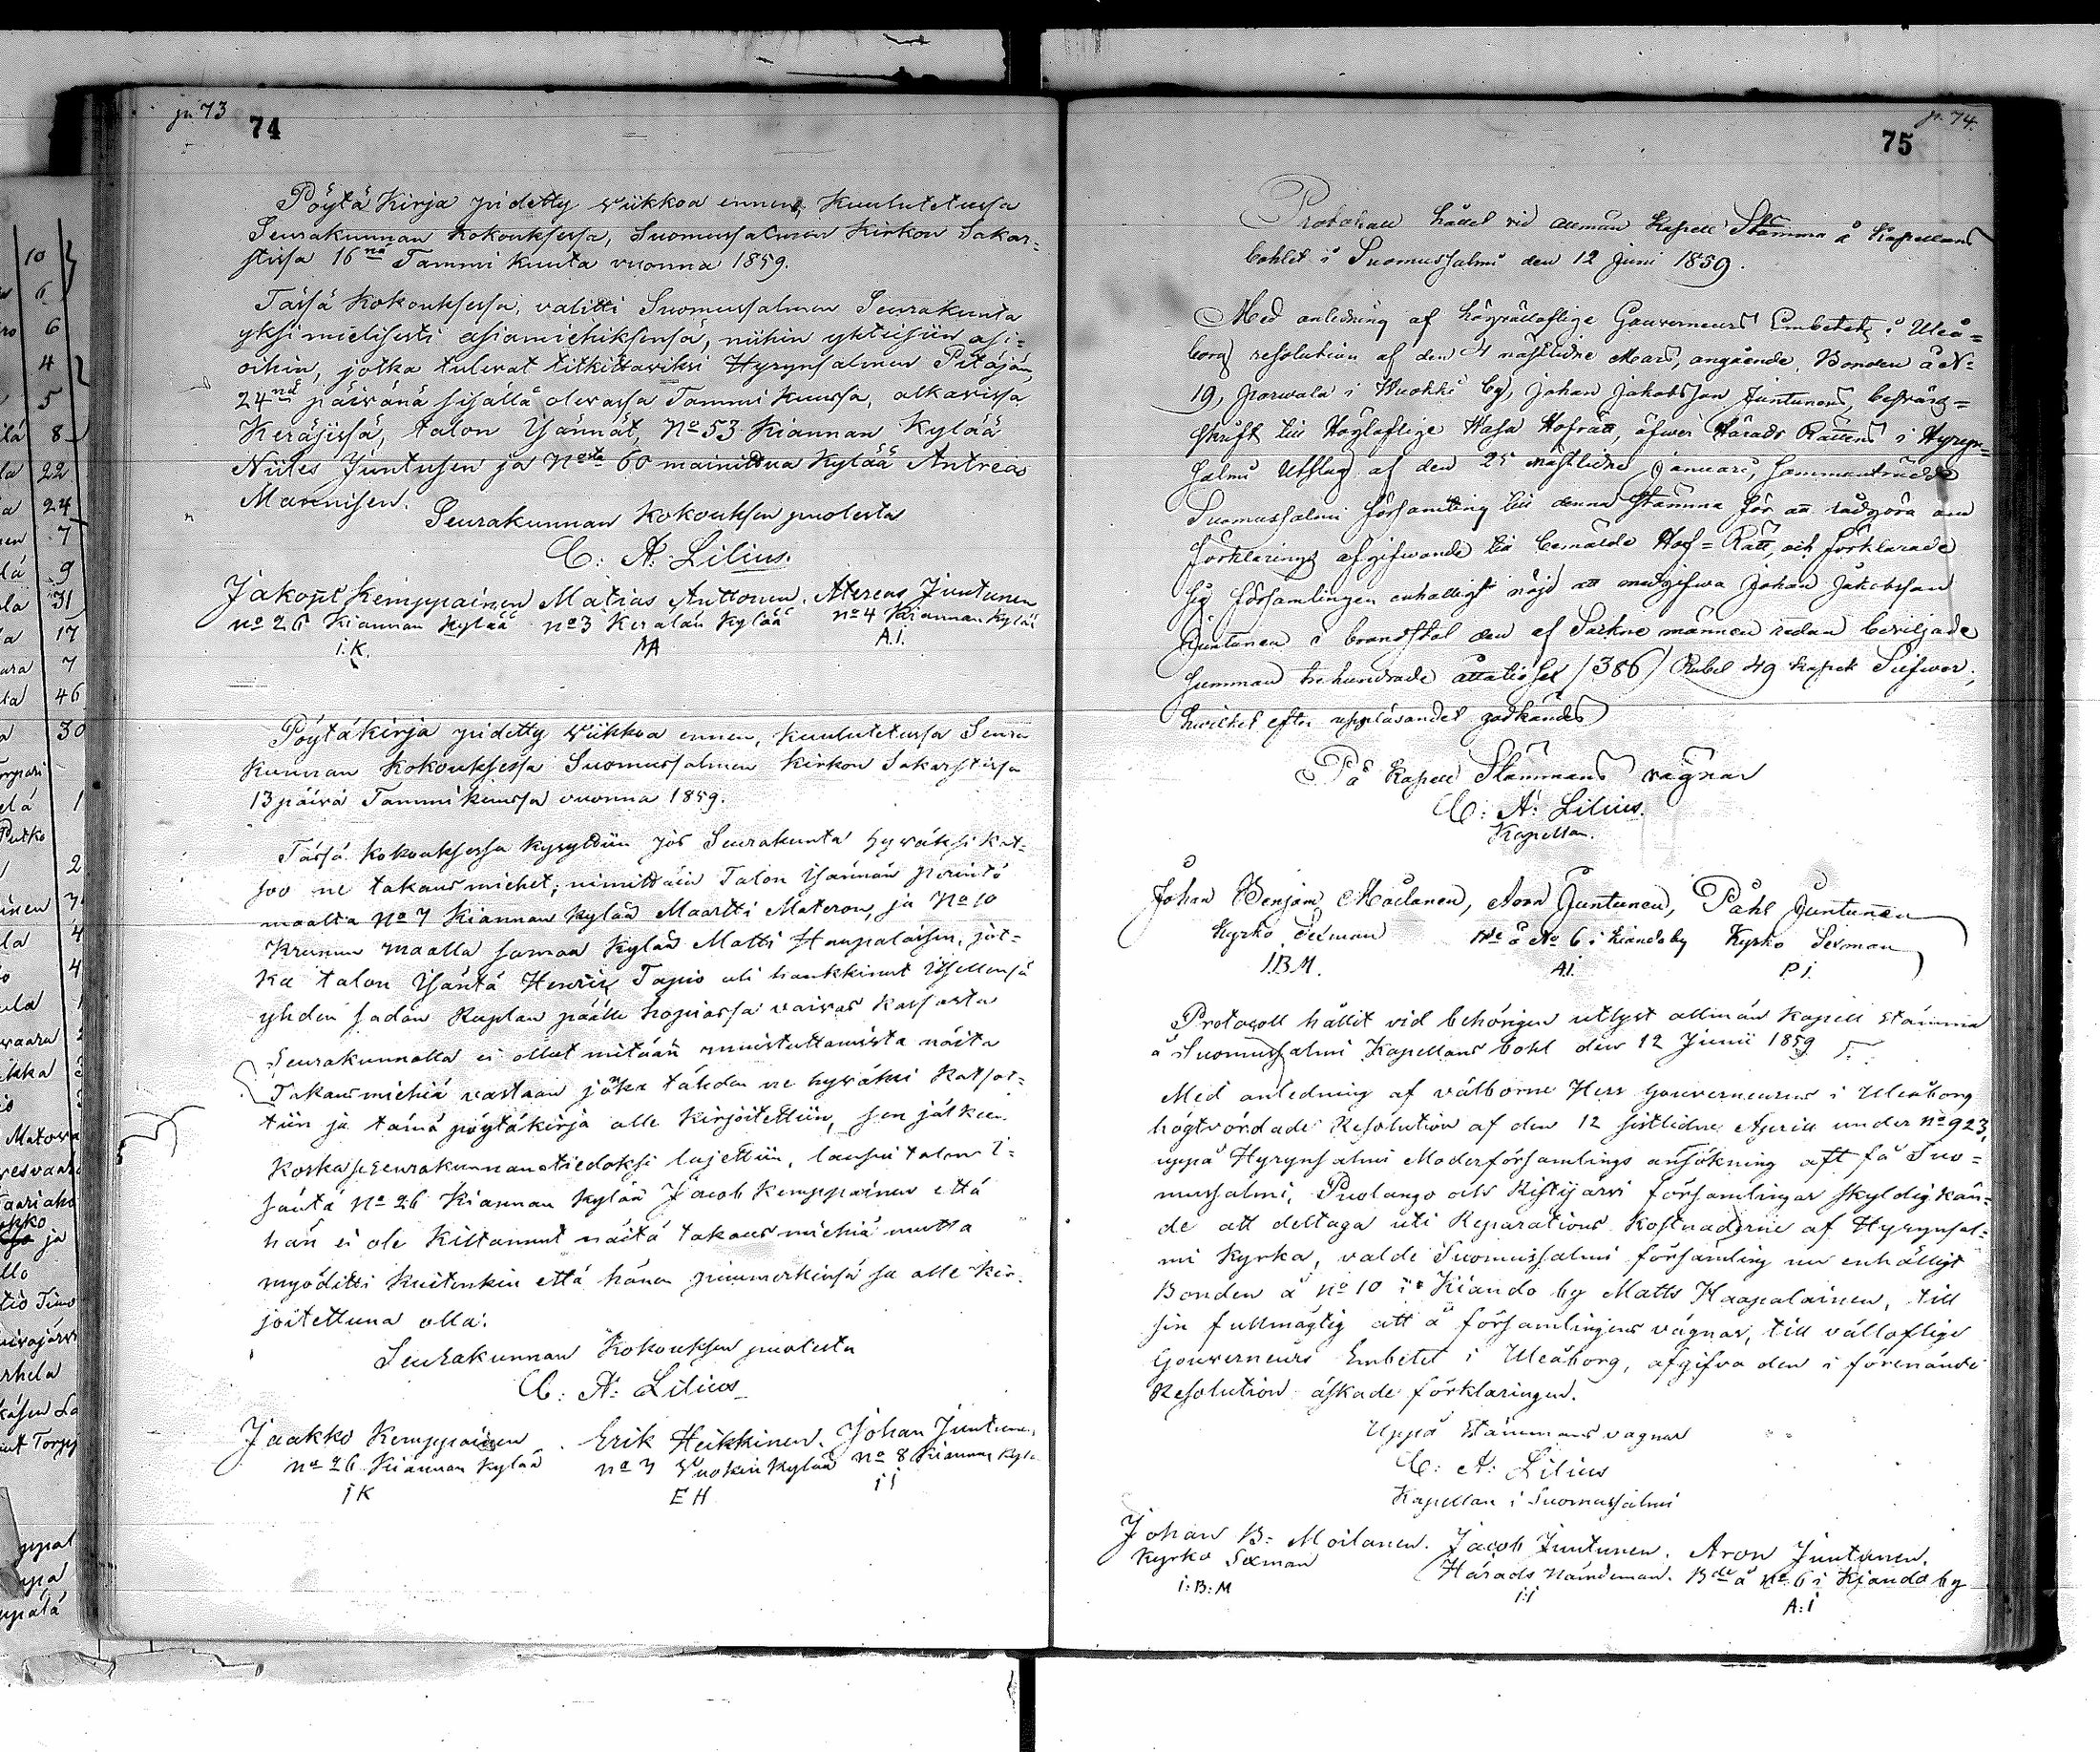 10
6
6
4
5
8
22
24
7
9
31
17
7
46
30
pr. 73
74
Pöytä Kirja pidetty viikkoa ennen, Kuulutetussa
Seurakunnan Kokouksessa, Suomussalmen Kirkon Sakas=
tissa 16na Tammi Kuuta vuonna 1859.
Tässä Kokouksessa, valitti Suomussalmen Seurakunta
yksimielisesti asiamiehiksensä, niihin yhteisiin asi=
oihin, jotka tulevat titkittaviksi Hyrynsalmen Pitäjän,
24nä päivänä sisällä olevassa Tammi Kuussa, alkavissa
Keräjissä, talon Isännät, No 53 Kiannan Kylää
Niiles Juntusen ja No 60 mainittua Kylää Antreas
Mannisen.
Seurakunnan Kokouksen puolesta
C: A: Lilius.
Jakop Kemppainen Matias Anttonen. Atreas Juntunen
no 26 Kiannan Kylää no 3 Keralan Kylää no 4 Kiannan Kylää
I.K. MA A.I.
Pöytäkirja pidetty viikkoa ennen, Kuulutetussa Seura
Kunnan Kokouksessa Suomussalmen Kirkon Sakarstissa
13 päivä Tammikuussa vuonna 1859.
Tässä Kokouksessa kysyttiin jos Seurakunta hyväksi kat=
soo ne takaus miehet, nimittäin Talon Isännän perintö
maalta No 7 Kiannan kylää Maartti Materon, ja No 10
Kruunun maalla samaa kylää Matti Haapalaisen, jot=
ka talon Isäntä Henrik Tapio oli hankkinut itsellensä
yhden sadan Ruplan päälle hopiassa vaivas kassasta
Seurakunnalla ei ollut mitään muistuttamista näitä
Takausmiehiä vastaan jonka tähden ne hyväksi katsot=
tiin ja tämä pöytäkirja alle kirjoitettiin, sen jälkeen
Koska se seurakunnan tiedoksi lujettiin, lausui talon I=
säntä No 26 Kiannan kylää Jacob Kemppainen että
hän ei ole kiittannut näitä takaus miehiä mutta
myöditti kuitenkin että hänen puumerkinsä sa alle kir=
joitettuna olla.
Seurakunnan Kokouksen puolesta
C: A: Lilius
Jaakko Kemppainen. Erik Heikkinen. Johan Juntunen
no 26 Kiannan kylää no 7 Vuokin kylää no 8 Kiannan kylää
I K E H I I
pr. 74.
75
Protokoll hållet vid allmän Kapell Stämma å Kapellans
bohlet i Suomussalmi den 12 Juni 1859.
Med anledning af högvällofliga Gouverneurs Embetets i Uleå=
borg resolution af den 4 nästlidne Mars, angående, Bonden å No
19, Porwala i Wuokki by, Johan Jakobsson Juntunens, besvärs=
skrift till Högloflige Wasa Hofrätt, öfwer Härads Rättens i Hyryn=
salmi Utslag af den 25 nästlidne Januari, sammanträdde
Suomussalmi församling till denna stämma för att rådgöra om
förklarings afgifwande till bemälde Hof=Rätt, och förklarade
sig församlingen enhälligt nöjd att medgifwa Johan Jakobsson
Juntunen i brandstod den af Sockne männen redan beviljade
summan trehundrade åttatiosex (386) Rubel 49 kopek Silfwer;
hvilket efter uppläsandet godkändes
På Kapell Stämmans vägnar
C: A: Lilius.
Kapellan.
Johan Benjam. Moilanen, Aron Juntunen, Påhl Juntunen
Kyrko Sexman Bde å No 6 i Kiando by Kyrko Sexman
I.B.M. A.I. P I.
Protocoll hållit vid behörigen utlyst allmän Kapell stämma
å Suomussalmi Kapellans bohl den 12 Junii 1859
Med anledning af välborne Herr Gouverneurens i Uleåborg
högtvördade Resolution af den 12 sistlidne Aprill under No 923,
uppå Hyrynsalmi Moderförsamlings ansökning att få Suo=
mussalmi, Puolango och Ristijärvi församlingar skyldig kän=
de att deltaga uti Reparations kostnaderne af Hyrynsal=
mi Kyrka, valde Suomussalmi församling nu enhälligt
Bonden å No 10 i Kiando by Matts Haapalainen, till
sin fullmägtig att å församlingens vägnar, till välloflige
Gouverneurs Embetet i Uleåborg, afgifva den i förenämde
Resolution äskade förklaringen.
Uppå Stämmans vägnar
C: A: Lilius
Kapellan i Suomussalmi
Johan B: Moilanen. Jacob Juntunen. Aron Juntunen.
Kyrko Sexman Härads Nämdeman. Bde å No 6 i Kiando by
I:B:M I:I A:I